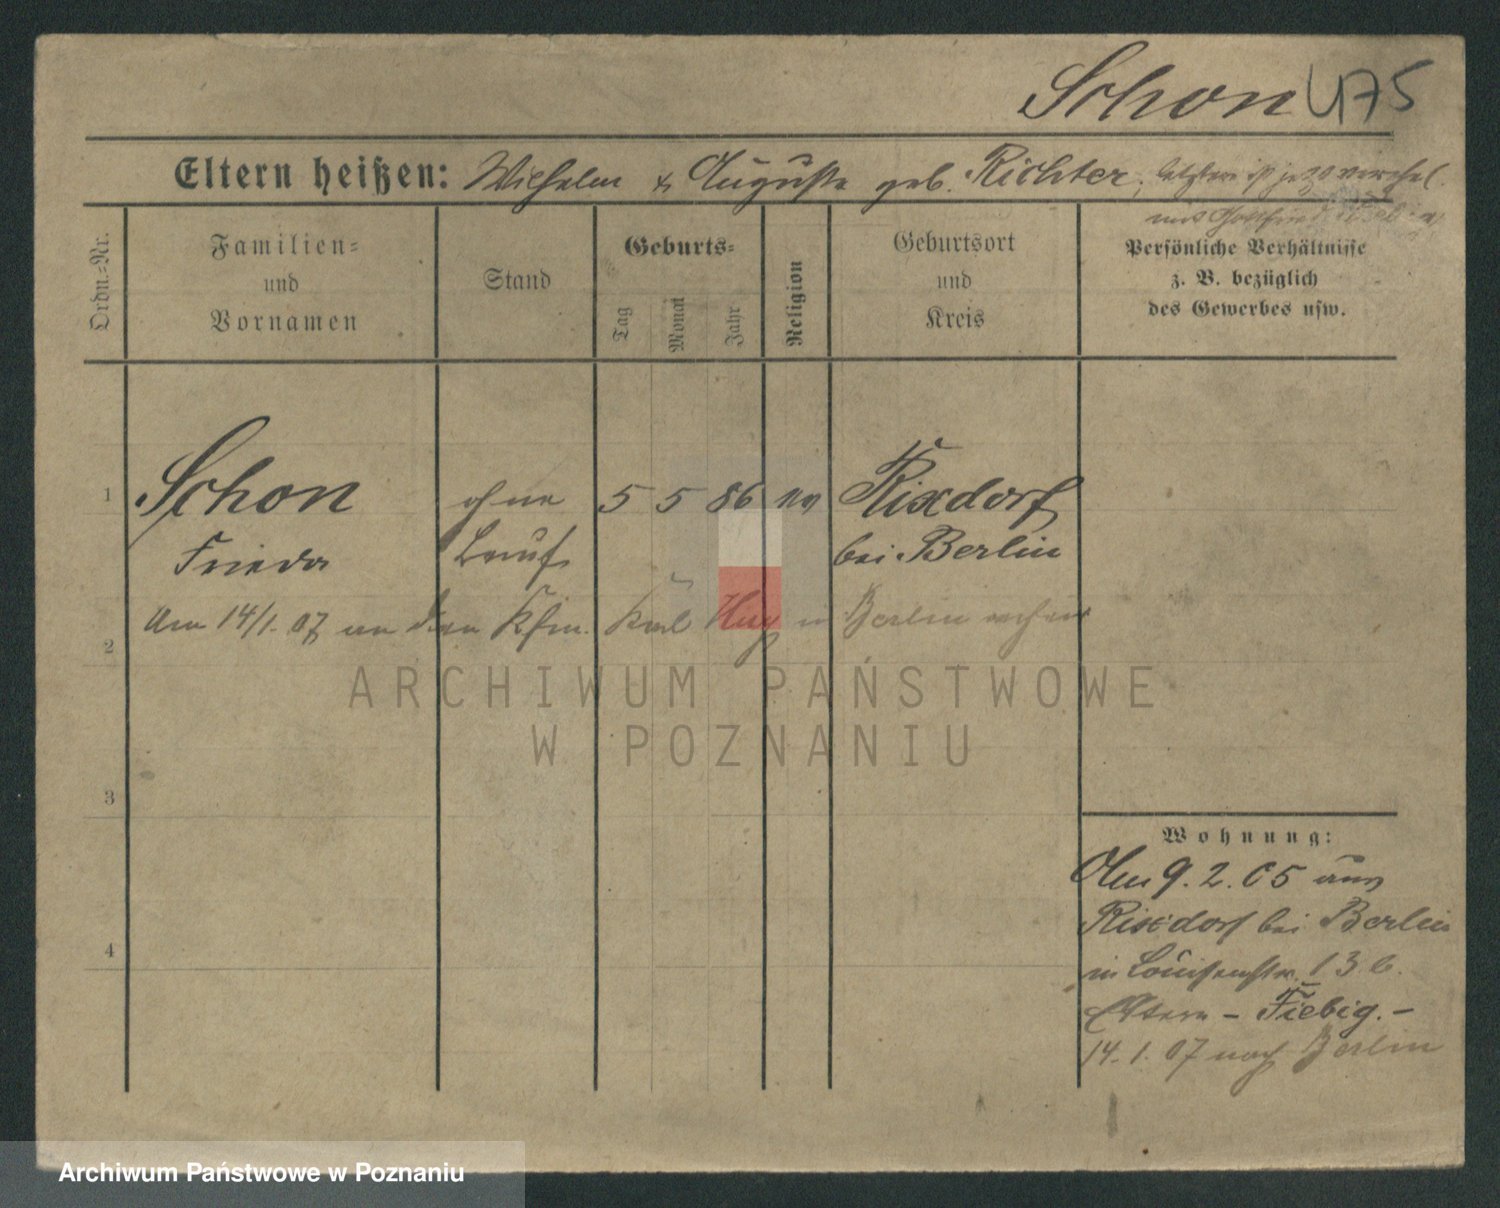 Schon 475
Eltern heißen: Wilhelm & Auguste geb. Richter, letztere ist
mit Gottfried
Ordn.=Nr.
Familien=
und
Vornamen
Stand
Geburts=
Tag
Monat
Jahr
Religion
Geburtsort
und
Kreis
Persönliche Verhältnisse
z. B. bezüglich
des Gewerbes usw.
1
Schon ohne 5 5 86 ev Rixdorf
Frieda Beruf bei Berlin
Am 14/1. 07 an den Kfm. Karl in Berlin verh
2
ARCHIWUM PAŃSTWOWE
W POZNANIU
3
Wohnung:
Am 9.2.05 aus
Rixdorf bei Berlin
in Louisenstr. 13b.
Eltern – Fiebig. –
14.1.07 nach Berlin
4
Archiwum Państwowe w Poznaniu